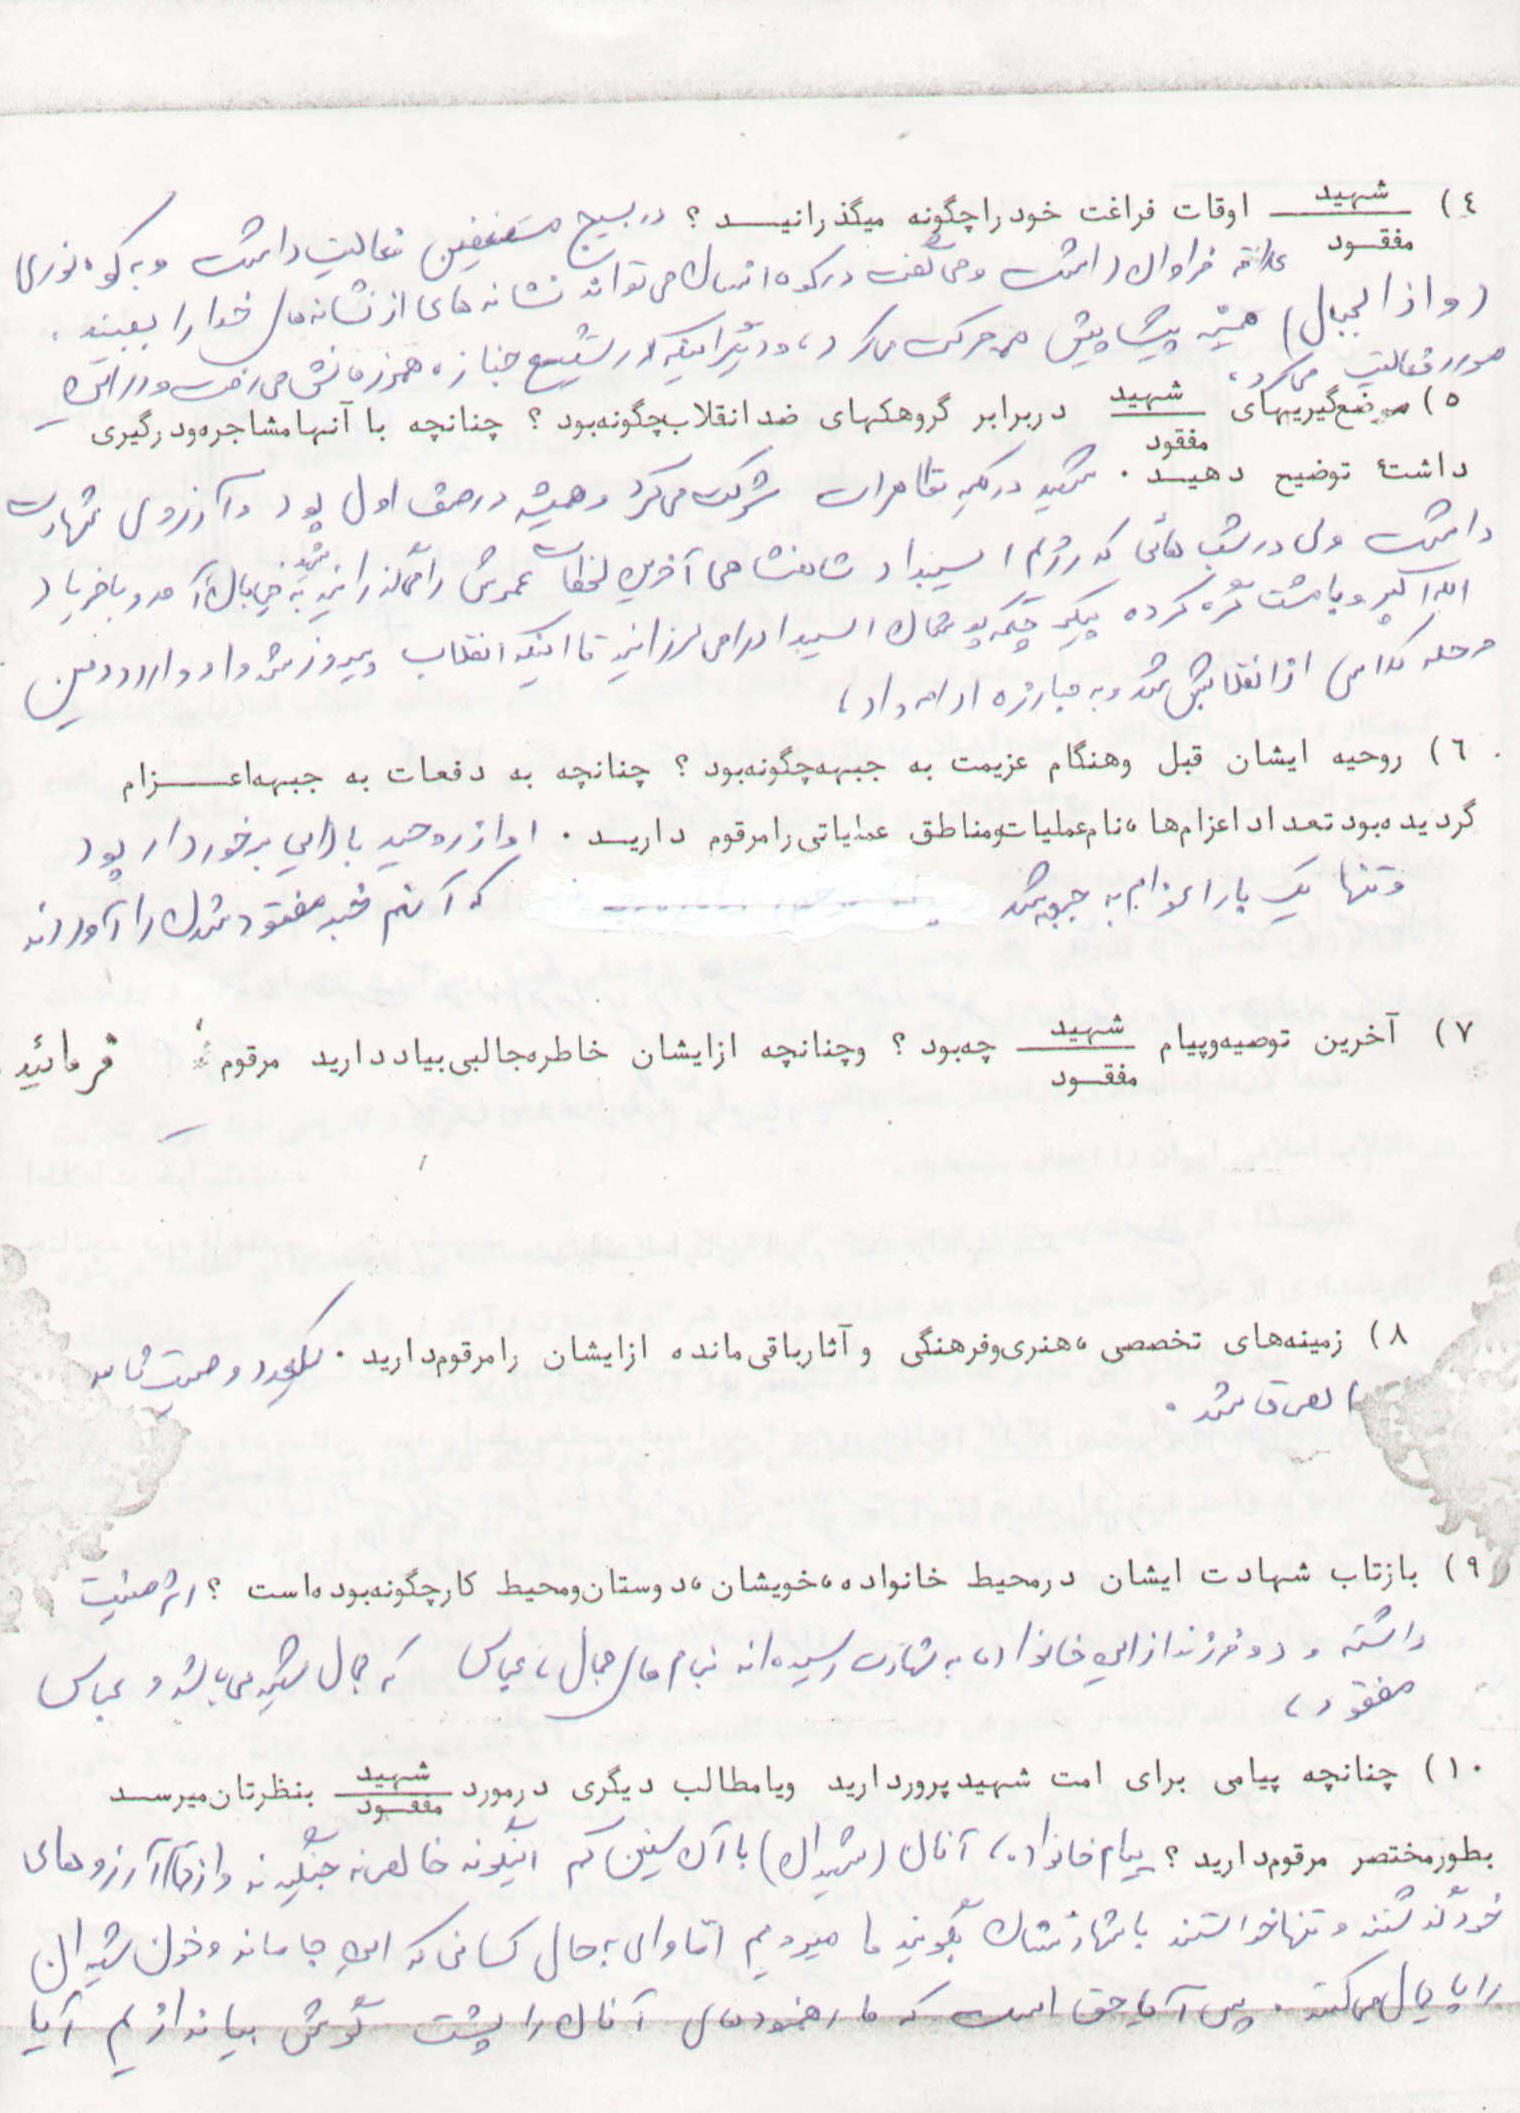 ٤) شهید اوقات فراغت خود را چگونه میگذرانیـــد ؟ در بسیج مستضعفین فعالیت داشت و به کوه نوردی
مفقـود
علاقه فراوان داشت و می گفت در کوه انسان می تواند نشانه های از نشانه های خدا را ببیند .
(واذا لجبال) همیشه پیشاپیش همه حرکت می کرد ، و دیگر اینکه در تشییع جنازه همرزمانش می رفت و در این
مورد فعالیت می کرد ،
٥) موضع‌گیریهای شهید در برابر گروهکهای ضد انقلاب چگونه بود ؟ چنانچه با آنها مشاجره و درگیری
مفقود
داشتهٔ توضیح دهیــد . شهید در کلیه تظاهرات شرکت می کرد و همیشه در صف اول بود و آرزوی شهادت
داشت ولی در شب هائی که رژیم استبداد شاهنشاهی آخرین لحظات عمرش را می گذرانید به خیابان آمد و با فریاد
الله اکبر و با مشت گره کرده پیکر چکمه پوشان استبداد را می لرزانید تا اینکه انقلاب پیروز شد و او وارد دومین
مرحله کدامی از انقلابش شد و به مبارزه ادامه داد ،
٦) روحیه ایشان قبل وهنگام عزیمت به جبهه چگونه بود ؟ چنانچه به دفعات به جبهه اعـــزام
گردیده بود تعداد اعزام ها ، نام عملیات و مناطق عملیاتی را مرقوم داریــد . او از روحیه بالایی برخوردار بود
و تنها یک بار اعزام به جبهه شد که آنهم خبر مفقود شدن را آوردند
٧) آخرین توصیه وپیام شهید چه بود ؟ وچنانچه از ایشان خاطره جالبی بیاد دارید مرقوم فرمائید .
مفقـود
٨) زمینه های تخصصی ، هنری وفرهنگی و آثار باقی مانده از ایشان را مرقوم دارید . وصیت نامه
٩) بازتاب شهادت ایشان در محیط خانواده ، خویشان ، دوستان ومحیط کار چگونه بوده است ؟ اثر مثبت
داشته و دو فرزند از این خانواده به شهادت رسیده اند بنام های جمال ، عباس که جمال شهید می باشد و عباس
مفقود ،
١٠) چنانچه پیامی برای امت شهید پرور دارید ویا مطالب دیگری در مورد شهید بنظرتان میرســد
مفقـود
بطور مختصر مرقوم دارید ؟ پیام خانواده ، آنان (شهیدان) با آن سنین کم اینگونه خالصانه جنگیدند و از تمام آرزوهای
خود گذشتند و تنها خواستند با شهادتشان بگویند ما میرویم اما وای به حال کسانی که این جا ماند و خون شهیدان
را پایمال می کنند . پس آیا حق است که ما رهنمودهای آنان را پشت گوش بیاندازیم آیا